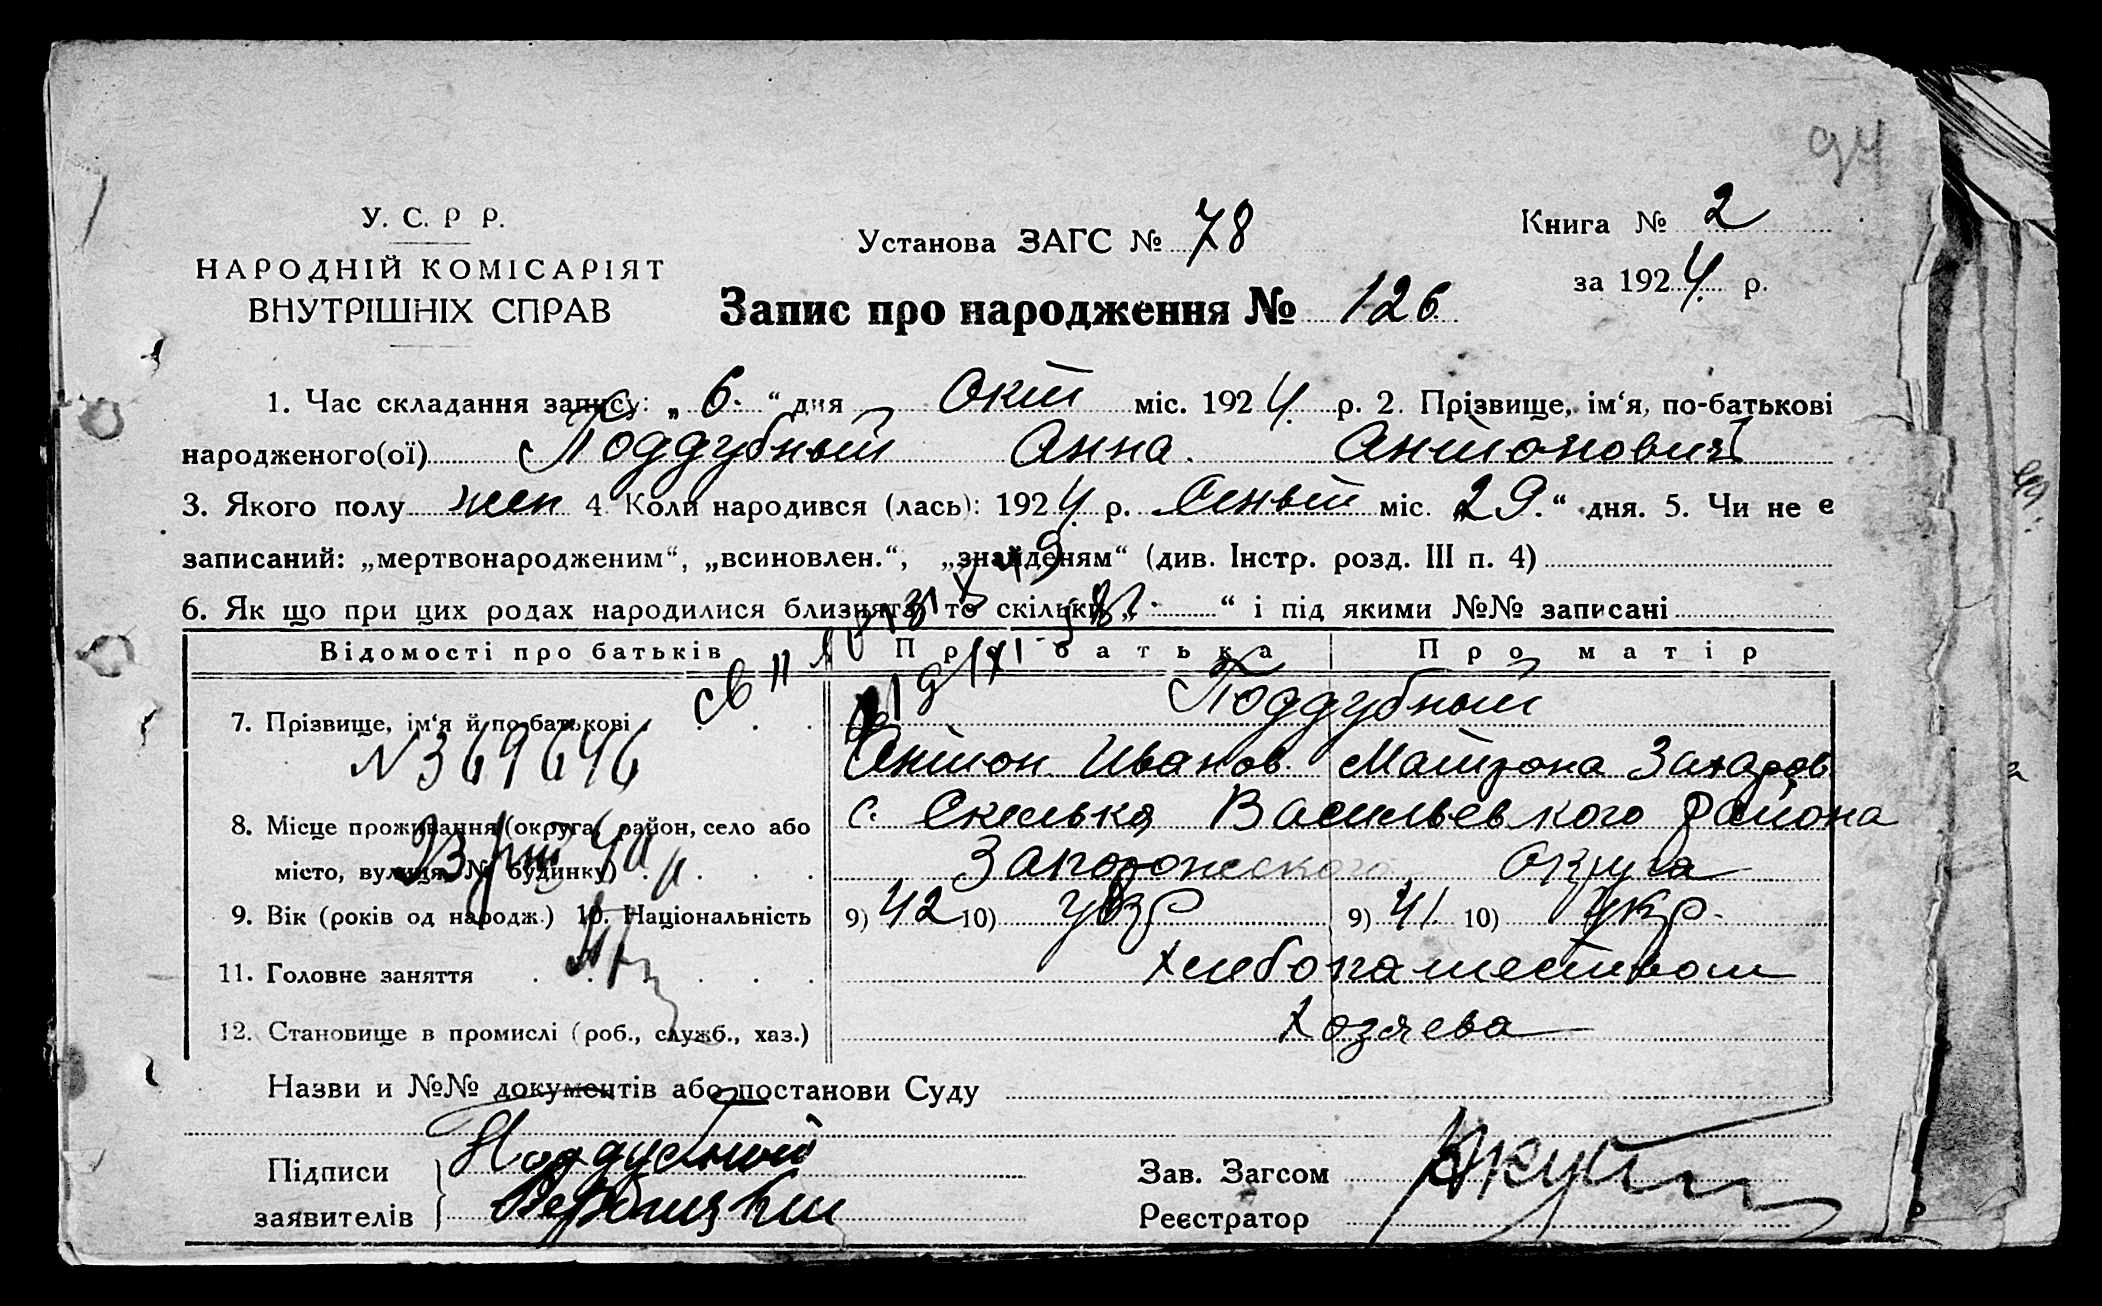 94
У. С. Р Р.
НАРОДНІЙ КОМІСАРІЯТ
ВНУТРІШНІХ СПРАВ
Установа ЗАГС № 78
Книга № 2
за 1924 р.
Запис про народження № 126
1. Час складання запису: „ 6. “ дня Окт міс. 1924 р. 2. Прізвище, ім‘я, по-батькові
народженого(ої) Поддубный Анна Антонович
3. Якого полу жен 4 Коли народився (лась): 1924 р. міс. „29.“ дня. 5. Чи не є
записаний: „мертвонародженим“, „всиновлен.“, „знайденям“ (див. Інстр. розд. III п. 4)
6. Як що при цих родах народилися близнята, то скільки „ “ і під якими №№ записані
Відомості про батьків Про батька Про матір
св
7. Прізвище, ім‘я й по-батькові . . . Поддубный
N 369646 Антон Иванов Матрона Захаров
8. Місце проживання (округа, район, село або с. Скелька Васильевкого района
місто, вулиця, № будинку) . . . . Запорожского округа
9. Вік (років од народж.) 10. Національність 9) 42 10) укр 9) 41 10) укр.
11. Головне заняття . . . . . . хлебопашеством
12. Становище в промислі (роб., служб., хаз.) Хозяева
Назви и №№ документів або постанови Суду
Підписи Поддубный Зав. Загсом
заявителів Реєстратор